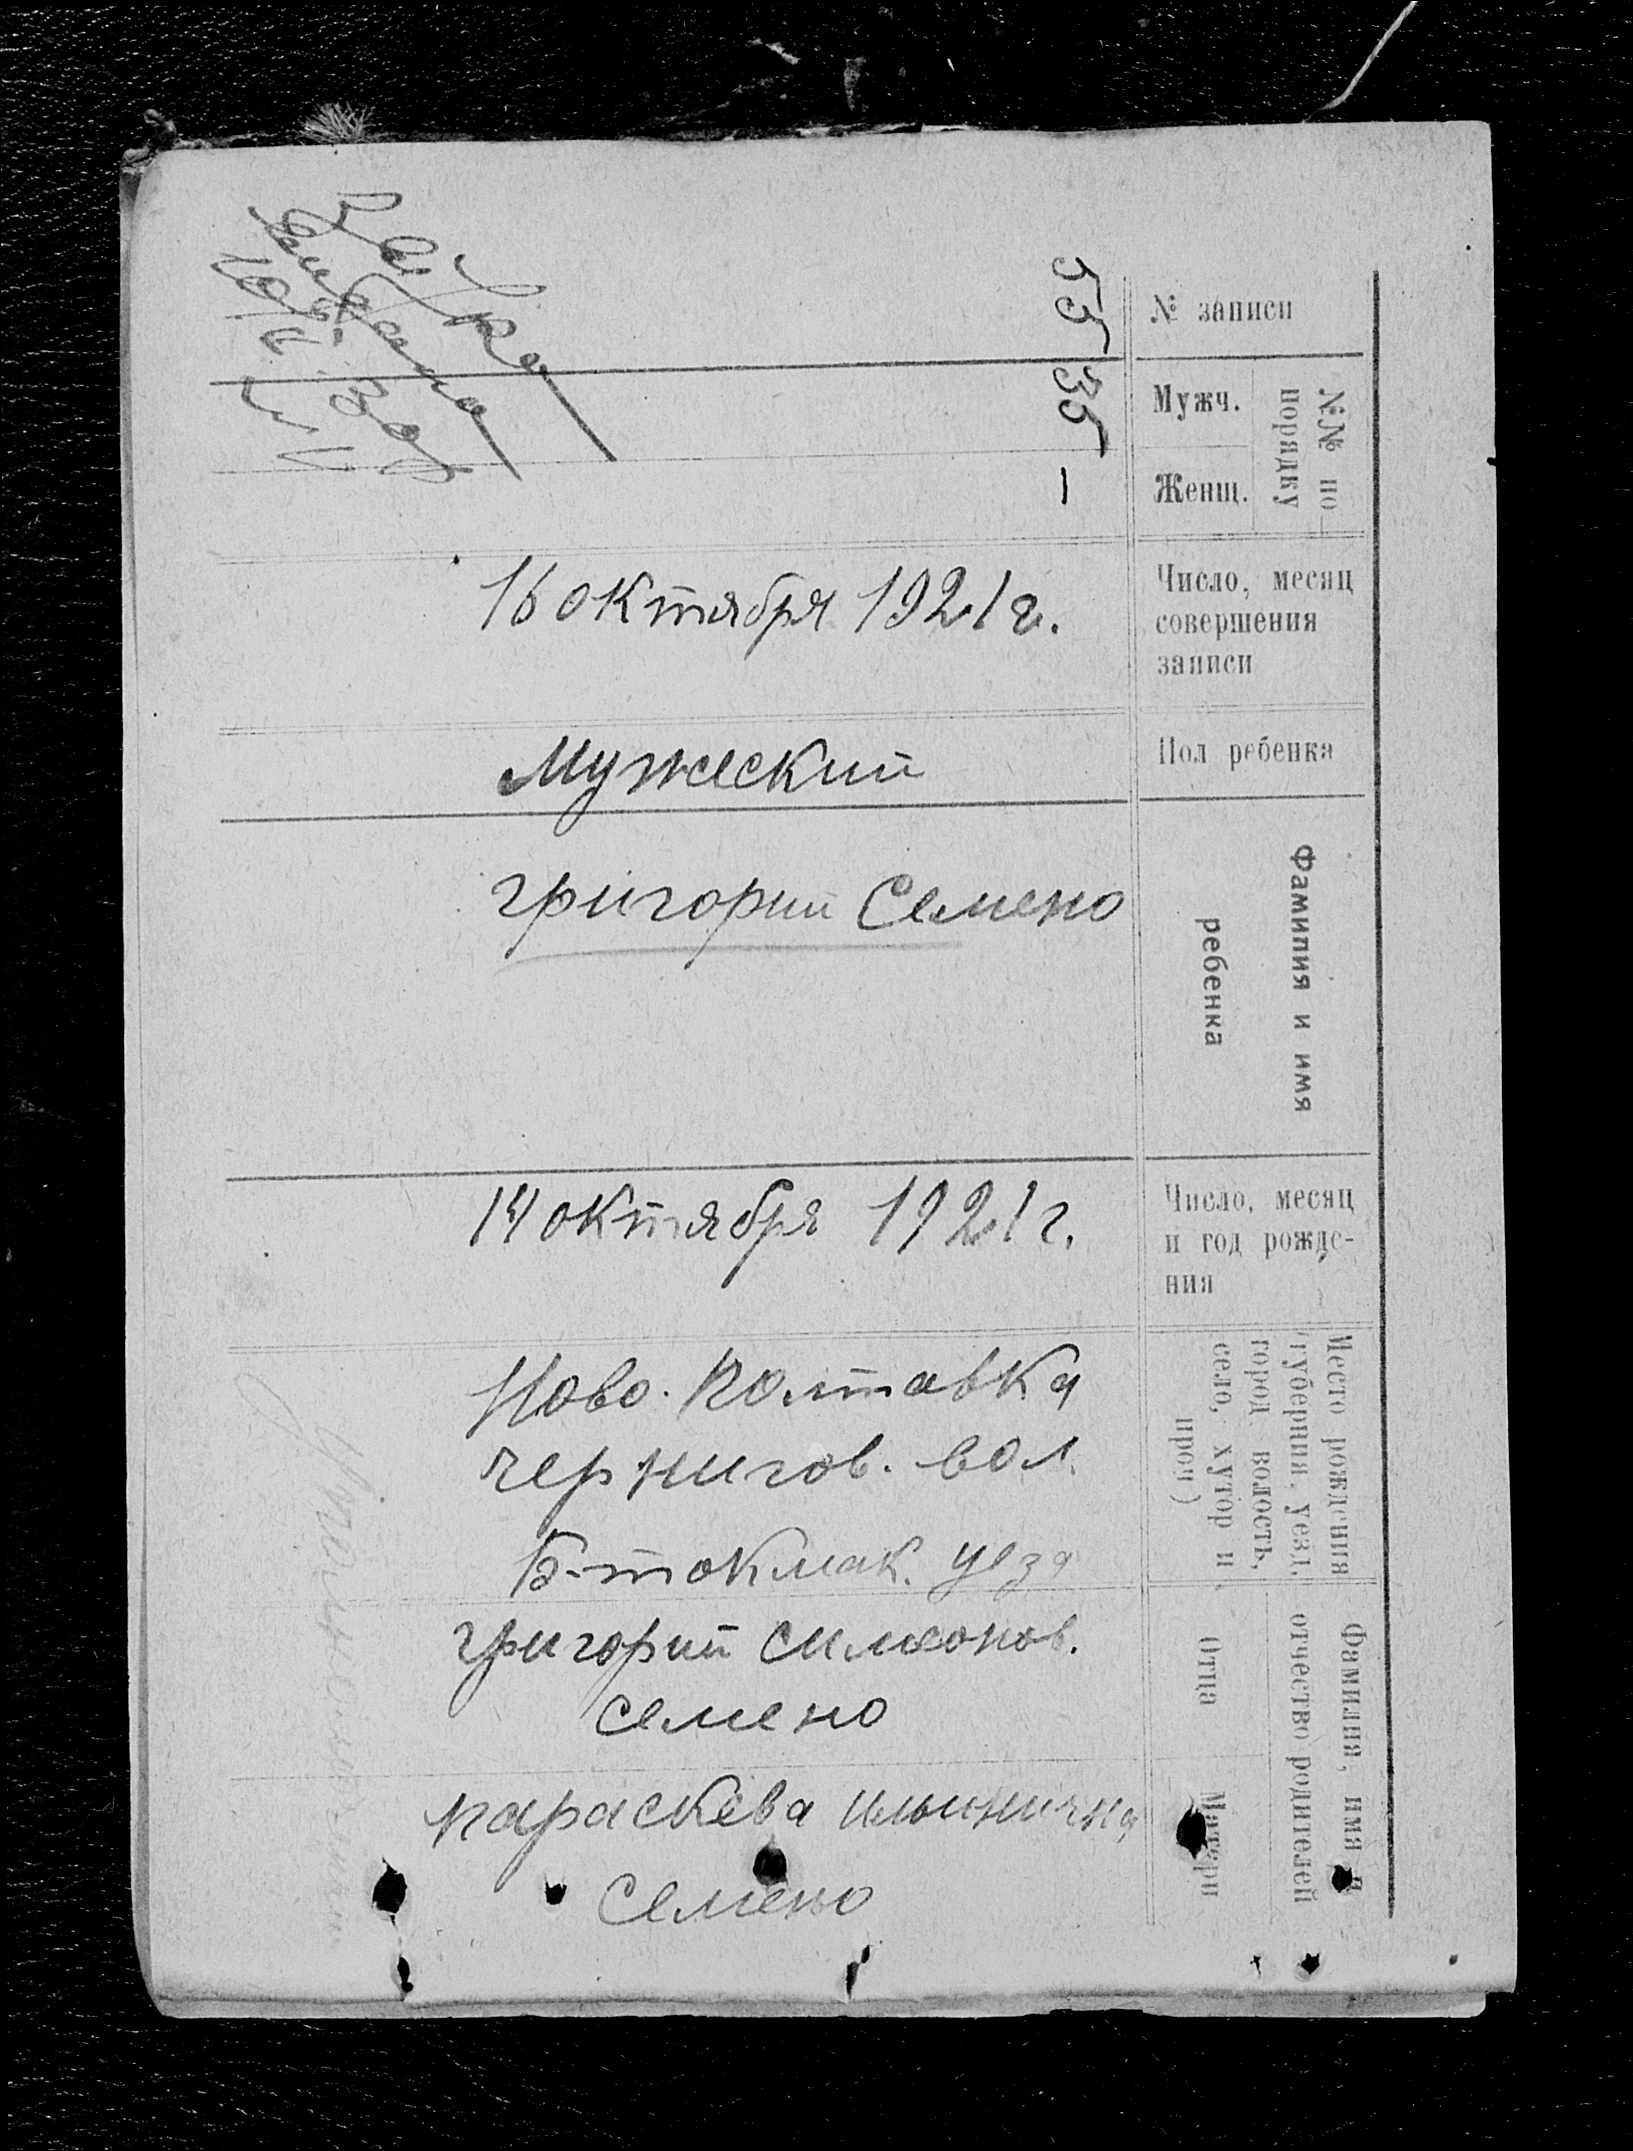 № записи
55
№№ по
порядку
Мужч.
35
Женщ.
–
Число, месяц
совершения
записи
16 октября 1921 г.
Пол ребенка
Мужеский
Фамилия и имя
ребенка
григорий Семено
Число, месяц
и год рожде-
ния
14 октября 1921 г.
Место рождения
(губерния, уезд,
город волость,
село, хутор и
проч)
Ново. Полтавка
чернигов. вол.
Б-токмак. уезд
Фамилия, имя и
отчество родителей
Отца
григорий симеонов.
семено
Матери
параскева ильинична
Семено